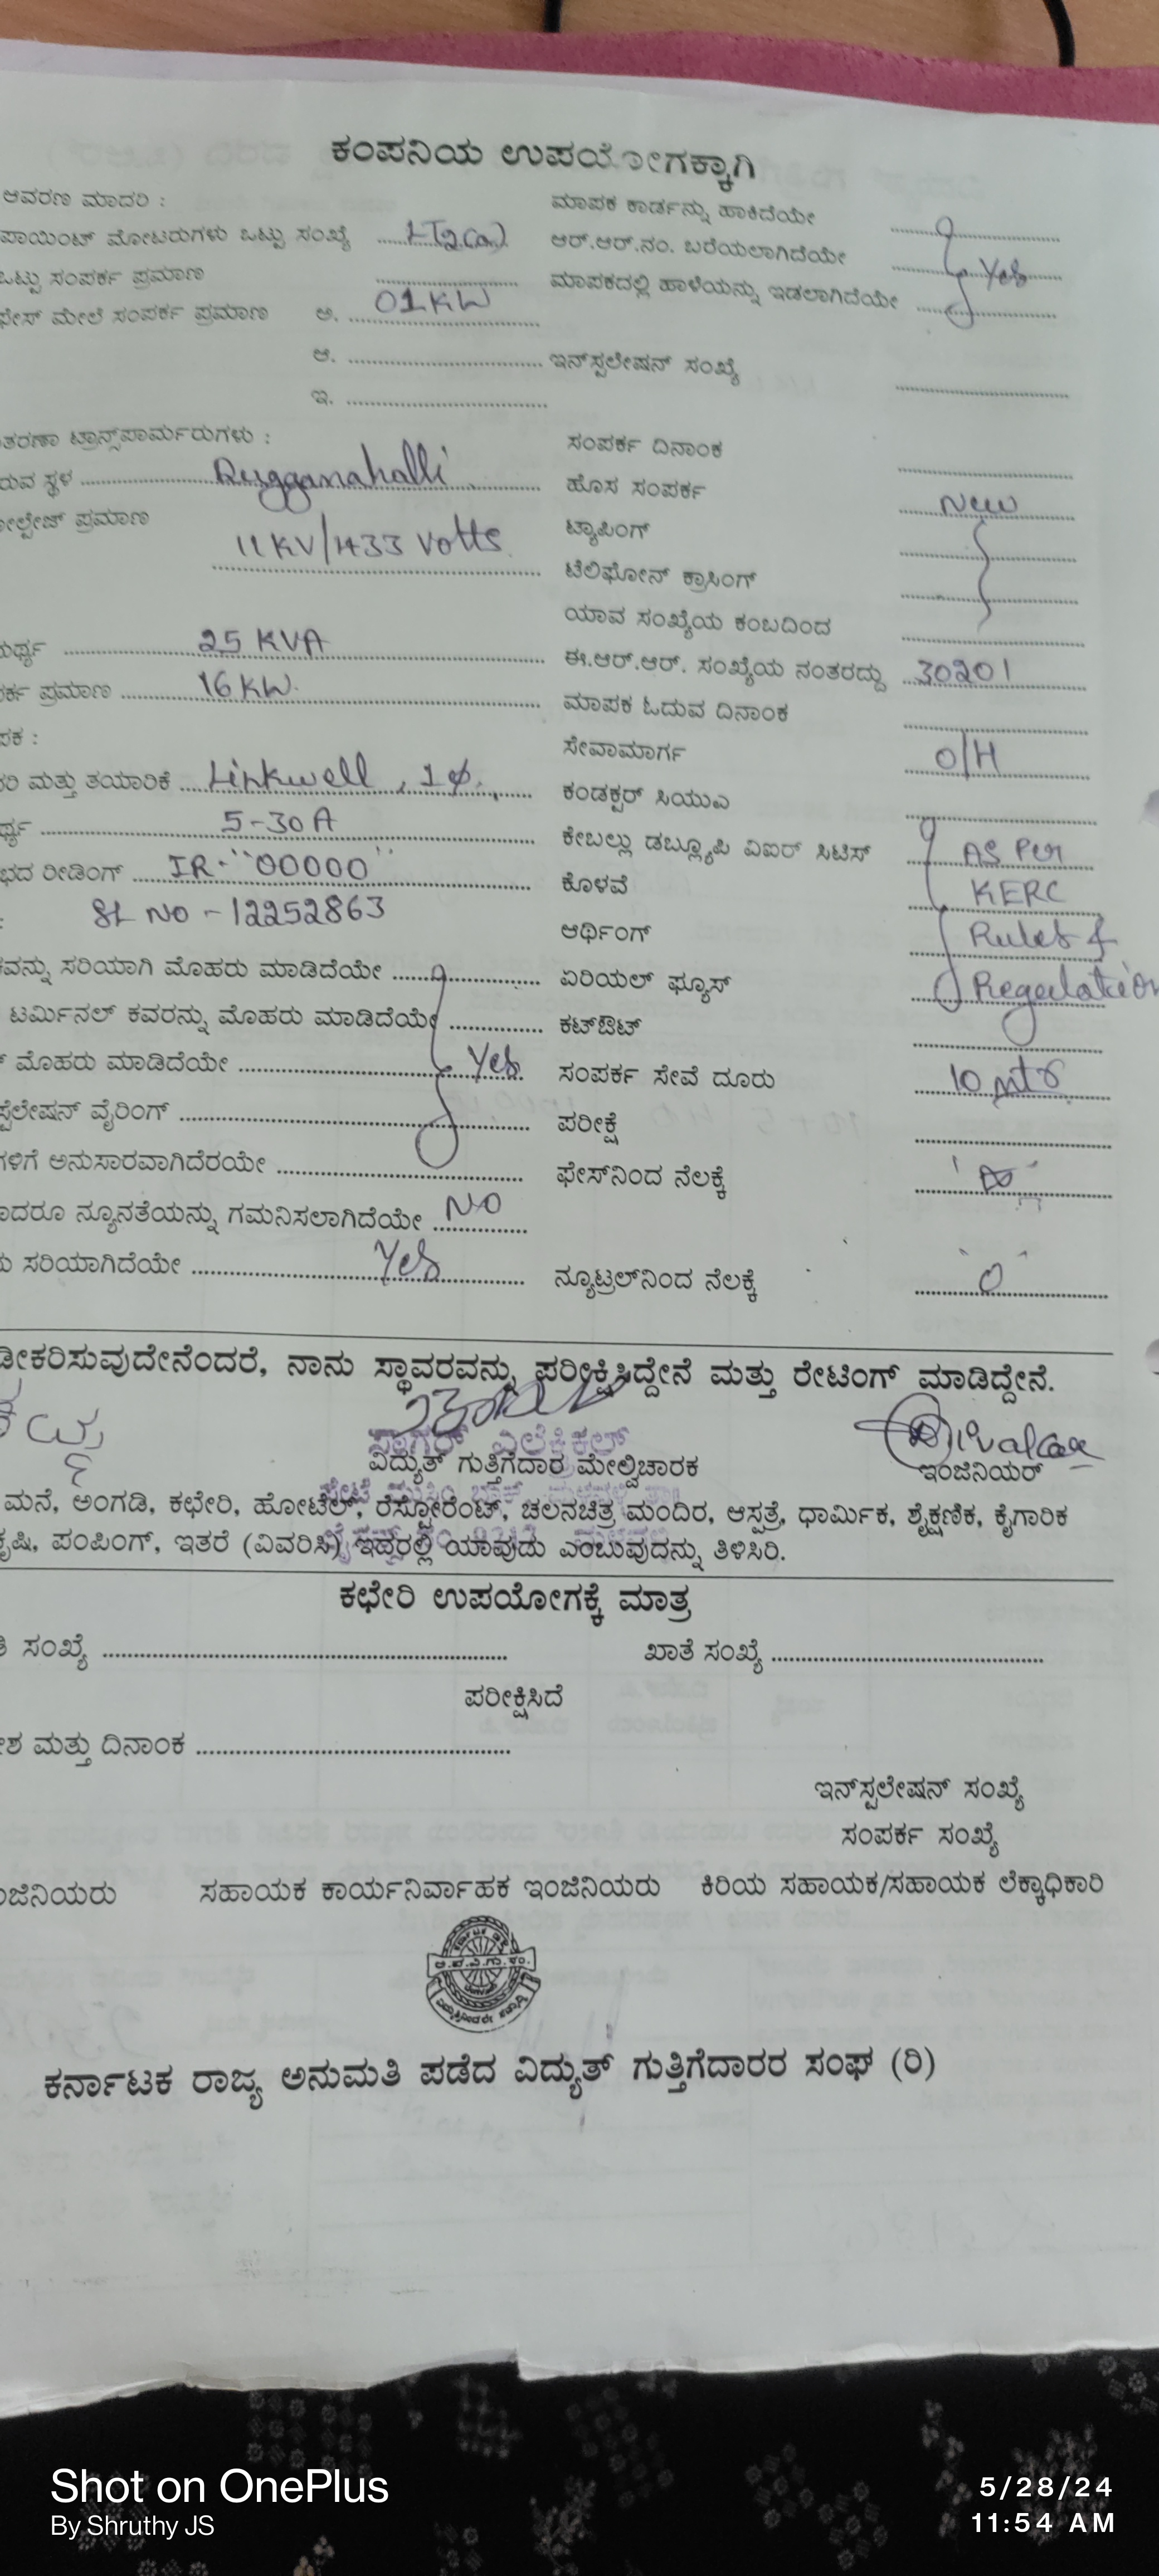 ಕಂಪನಿಯ ಉಪಯೋಗಕ್ಕಾಗಿ
ಆವರಣ ಮಾದರಿ :
ಮಾಪಕ ಕಾರ್ಡನ್ನು ಹಾಕಿದೆಯೇ
ಪಾಯಿಂಟ್ ಮೋಟರುಗಳು ಒಟ್ಟು ಸಂಖ್ಯೆ LT2(a)
ಆರ್.ಆರ್.ನಂ. ಬರೆಯಲಾಗಿದೆಯೇ Yes
ಒಟ್ಟು ಸಂಪರ್ಕ ಪ್ರಮಾಣ
ಮಾಪಕದಲ್ಲಿ ಹಾಳೆಯನ್ನು ಇಡಲಾಗಿದೆಯೇ
ಫೇಸ್ ಮೇಲೆ ಸಂಪರ್ಕ ಪ್ರಮಾಣ ಅ. 01KW
ಆ.
ಇನ್‌ಸ್ಪಲೇಷನ್ ಸಂಖ್ಯೆ
ಇ.
ತರಣಾ ಟ್ರಾನ್ಸ್‌ಪಾರ್ಮರುಗಳು :
ಸಂಪರ್ಕ ದಿನಾಂಕ
ರುವ ಸ್ಥಳ
ಹೊಸ ಸಂಪರ್ಕ New
ೋಲ್ಟೇಜ್ ಪ್ರಮಾಣ 11KV/433 Volts
ಟ್ಯಾಪಿಂಗ್
ಟೆಲಿಫೋನ್ ಕ್ರಾಸಿಂಗ್
ಯಾವ ಸಂಖ್ಯೆಯ ಕಂಬದಿಂದ
ಮರ್ಥ್ಯ 25 KVA
ಈ.ಆರ್.ಆರ್. ಸಂಖ್ಯೆಯ ನಂತರದ್ದು 30201
ರ್ಕ ಪ್ರಮಾಣ 16KW.
ಮಾಪಕ ಓದುವ ದಿನಾಂಕ
ಪಕ :
ಸೇವಾಮಾರ್ಗ O/H
ರಿ ಮತ್ತು ತಯಾರಿಕೆ Linkwell, 1φ.
ಕಂಡಕ್ಟರ್ ಸಿಯುಎ
ರ್ಥ್ಯ 5-30A
ಕೇಬಲ್ಲು ಡಬ್ಲ್ಯೂಪಿ ವಿಐರ್ ಸಿಟಿಸ್ AS Per
ಭದ ರೀಡಿಂಗ್ IR-"00000"
ಕೊಳವೆ KERC
: SL NO - 12252863
ಆರ್ಥಿಂಗ್ Rules &
ಕವನ್ನು ಸರಿಯಾಗಿ ಮೊಹರು ಮಾಡಿದೆಯೇ
ಏರಿಯಲ್ ಫ್ಯೂಸ್ Regulation
ಟರ್ಮಿನಲ್ ಕವರನ್ನು ಮೊಹರು ಮಾಡಿದೆಯೇ
ಕಟ್‌ಔಟ್
ಮೊಹರು ಮಾಡಿದೆಯೇ Yes
ಸಂಪರ್ಕ ಸೇವೆ ದೂರು 10 mtr
ಸ್ಪೆಲೇಷನ್ ವೈರಿಂಗ್
ಪರೀಕ್ಷೆ
ಗಳಿಗೆ ಅನುಸಾರವಾಗಿದೆರಯೇ
ಫೇಸ್‌ನಿಂದ ನೆಲಕ್ಕೆ
ಾದರೂ ನ್ಯೂನತೆಯನ್ನು ಗಮನಿಸಲಾಗಿದೆಯೇ NO
ು ಸರಿಯಾಗಿದೆಯೇ Yes
ನ್ಯೂಟ್ರಲ್‌ನಿಂದ ನೆಲಕ್ಕೆ "0"
ಡೀಕರಿಸುವುದೇನೆಂದರೆ, ನಾನು ಸ್ಥಾವರವನ್ನು ಪರೀಕ್ಷಿಸಿದ್ದೇನೆ ಮತ್ತು ರೇಟಿಂಗ್ ಮಾಡಿದ್ದೇನೆ.
ಸಾಗರ್ ಎಲೆಕ್ಟ್ರಿಕಲ್
ವಿದ್ಯುತ್ ಗುತ್ತಿಗೆದಾರ ಮೇಲ್ವಿಚಾರಕ
ಇಂಜಿನಿಯರ್
ಮನೆ, ಅಂಗಡಿ, ಕಛೇರಿ, ಹೋಟೆಲ್, ರೆಸ್ಟೋರೆಂಟ್, ಚಲನಚಿತ್ರ ಮಂದಿರ, ಆಸ್ಪತ್ರೆ, ಧಾರ್ಮಿಕ, ಶೈಕ್ಷಣಿಕ, ಕೈಗಾರಿಕ
ಕೃಷಿ, ಪಂಪಿಂಗ್, ಇತರೆ (ವಿವರಿಸಿ) ಇವರಲ್ಲಿ ಯಾವುದು ಎಂಬುವುದನ್ನು ತಿಳಿಸಿರಿ.
ಕಛೇರಿ ಉಪಯೋಗಕ್ಕೆ ಮಾತ್ರ
ಸಂಖ್ಯೆ
ಖಾತೆ ಸಂಖ್ಯೆ
ಪರೀಕ್ಷಿಸಿದೆ
ೇಶ ಮತ್ತು ದಿನಾಂಕ
ಇನ್‌ಸ್ಪಲೇಷನ್ ಸಂಖ್ಯೆ
ಸಂಪರ್ಕ ಸಂಖ್ಯೆ
ಂಜಿನಿಯರು ಸಹಾಯಕ ಕಾರ್ಯನಿರ್ವಾಹಕ ಇಂಜಿನಿಯರು ಕಿರಿಯ ಸಹಾಯಕ/ಸಹಾಯಕ ಲೆಕ್ಕಾಧಿಕಾರಿ
ಕರ್ನಾಟಕ ರಾಜ್ಯ ಅನುಮತಿ ಪಡೆದ ವಿದ್ಯುತ್ ಗುತ್ತಿಗೆದಾರರ ಸಂಘ (ರಿ)
Shot on OnePlus
By Shruthy JS
5/28/24
11:54 AM